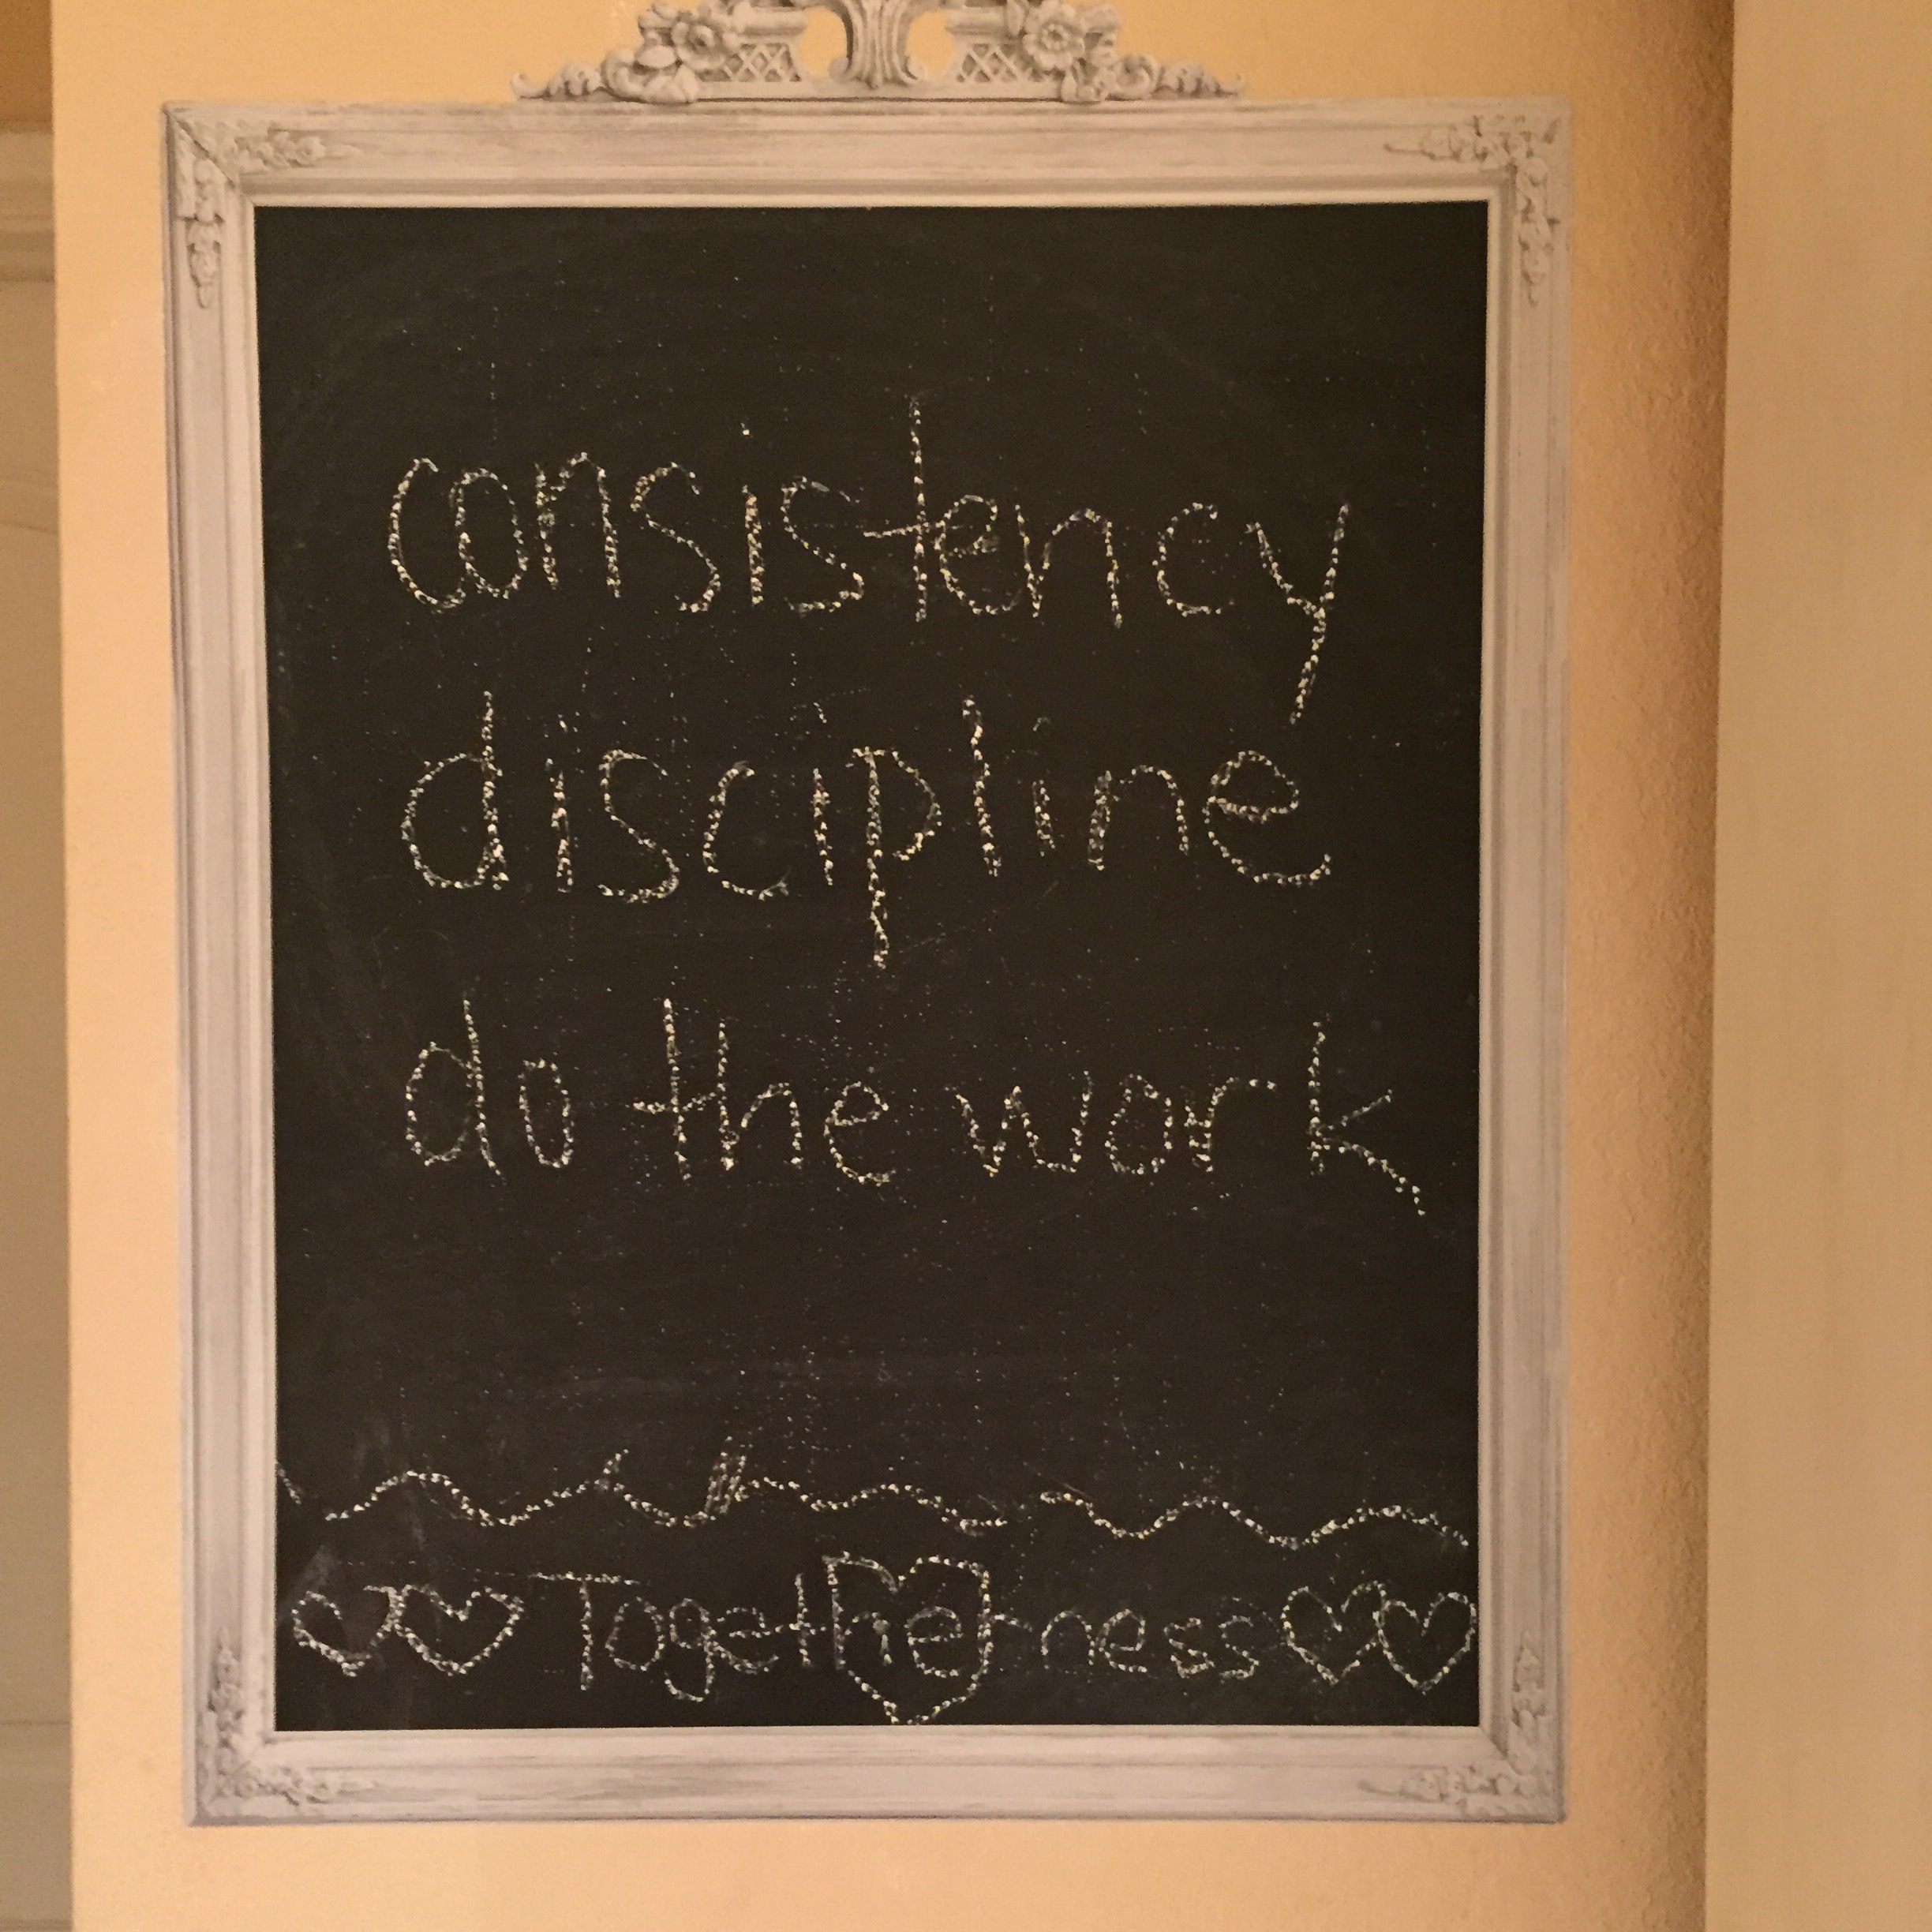 consistency
discipline
do the work
Togetherness